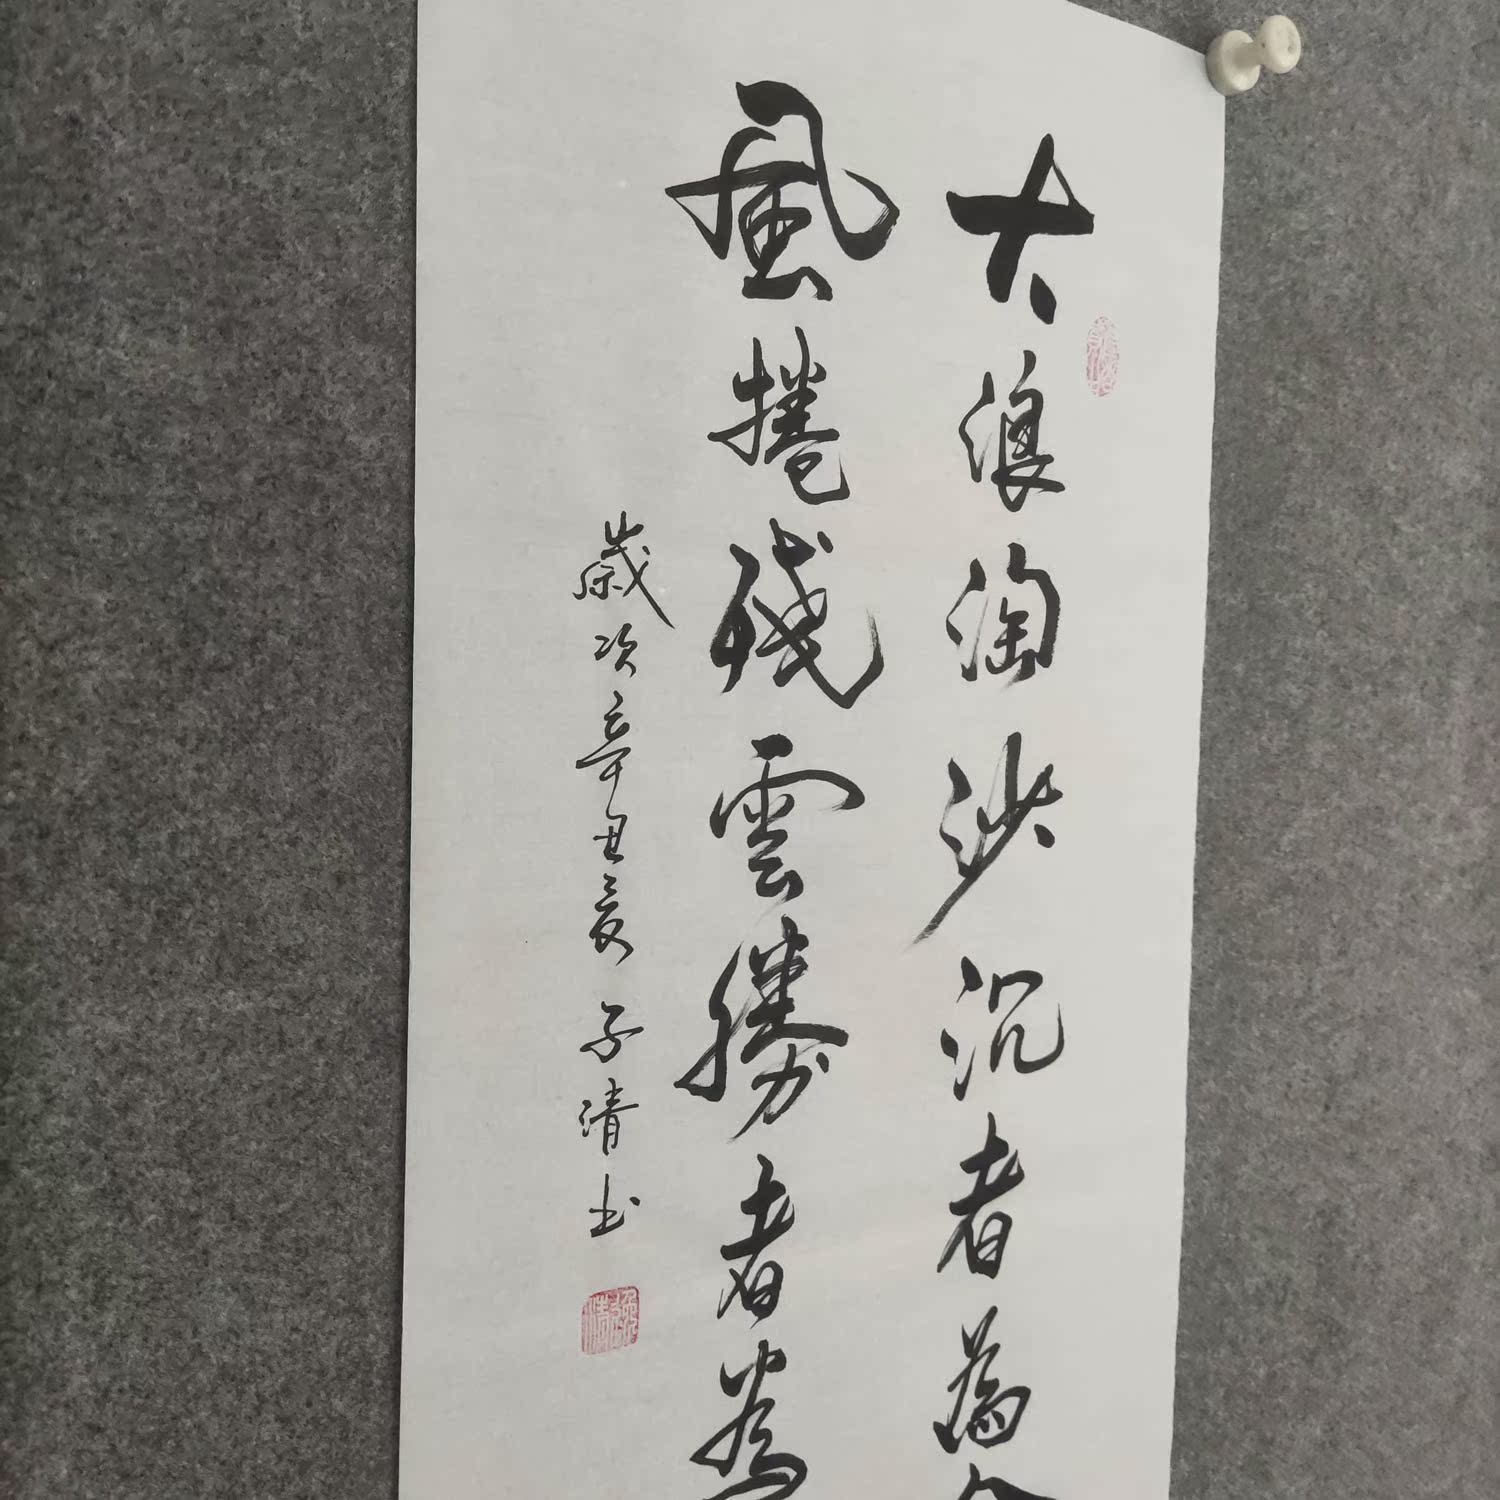 大浪淘沙沉者為
風捲殘雲勝者為
歲次辛丑夏子清书